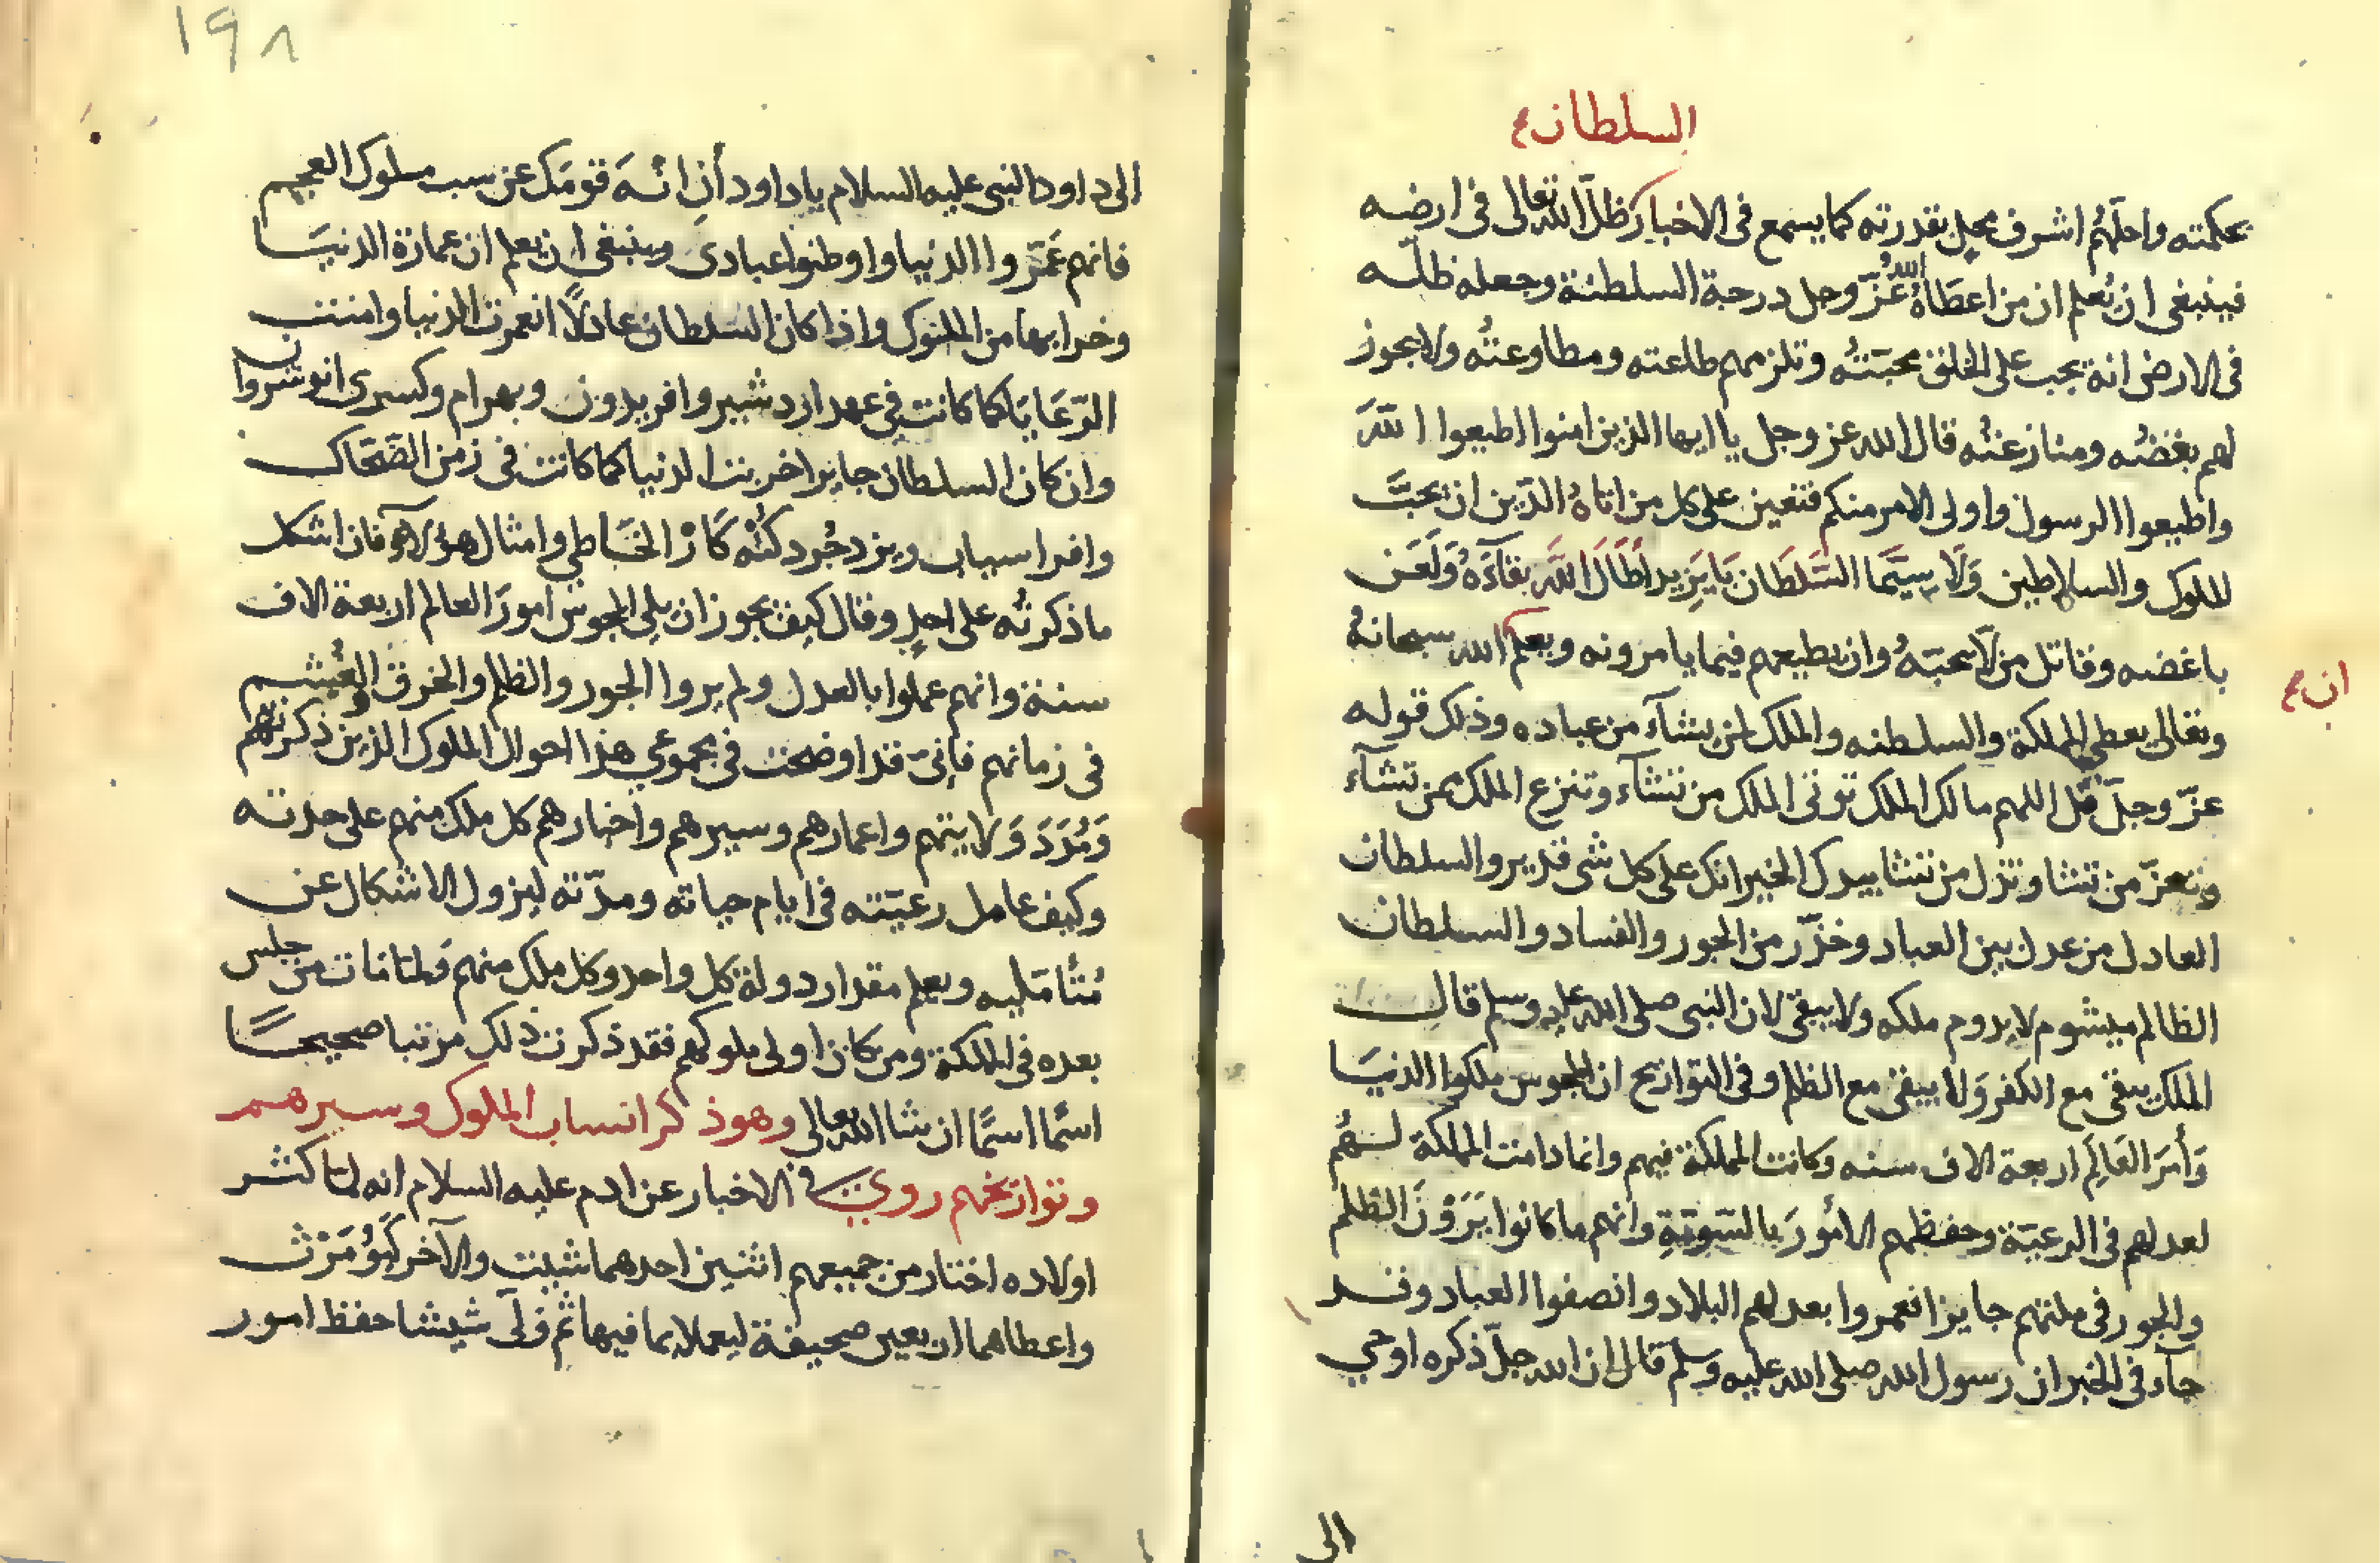 السلطان
بحكمته واحلهم اشرف محل بقدرته كما يسمع فى الاخبار ظل الله تعالى فى ارضه
فينبغى ان يُعلم ان من اعطاهُ اللهُ عزّ وجل درجة السلطنة وجعله ظلّه
فى الارض انه يجب على الخلق محبّتُه وتلزمهم طاعته ومطاوعتُه ولا يجوز
لهم بغضُه ومنازعتُه قال الله عز وجل يا ايها الذين امنوا اطيعوا اللهَ
واطيعوا الرسول واولى الامر منكم فتعين على كل من اتاهُ الدّين ان يحبَّ
للملوك والسلاطين وَلَا سِيَّمَا السَّلطَان بَايَزِيد أَطَالَ اللَّه بَقَآءَهُ وَلَعَن
باغضه وقاتل من لا يحبّهُ وان يطيعهم فيما يامرونه ويعلم الله سبحانهُ
ان
وتعالى يعطى المملكة والسلطنه والملك لمن يشآء من عباده وذلك قوله
عزّ وجلّ قُل اللهم مالك الملك توتى الملك من تشآء وتنزع الملك ممن تشآء
وتعزّ من تشا وتذل من تشا بيدك الخير انك على كل شى قدير والسلطان
العادل من عدل بين العباد وحذّر من الجور والفساد والسلطان
الظالم ميشوم لا يدوم ملكه ولا يبقى لان النبى صلى الله عليه وسلم قال
الملك يبقى مع الكفر وَلا يبقى مع الظلم وفى التواريخ ان المجوس ملكوا الدنيَا
وَأمرَ العَالِم اربعة الاف سنه وكانت المملكة فيهم وانما دامت المملكة لَهُم
لعدلهم فى الرعيّة وحفظهم الامُورَ بالسّويّةِ وانهم ما كانوا يَرَوْنَ الظلم
والجور فى ملتهم جايزا فعمروا بعدلهم البلاد وانصفوا العباد وقد
جآء فى الخبر ان رسول الله صلى الله عليه وسلم قال ان الله جلّ ذكره اوحي
الى
١٩٨
الى داود النبى عليه السلام يا داود أن انْهَ قومَك عن سب ملوك العجم
فانهم عَمَّروا الدنيا واوطنوا عبادى وينبغى ان يعلم ان عمارة الدنيَا
وخرابها من الملوك واذا كان السّلطان عادلًا انعمرت الدنيا وامنت
الرّعَايَا كما كانت فى عهد اردشير وافريدون وبهرام وكسرى انوشروان
وان كان السلطان جايرا خربت الدنيا كما كانت فى زمن الضّحّاك
وافراسياب ويزدجُرد كُنْه كَازْ الخَاطي وامثال هؤلآء فان اشكل
ما ذكرتُه على احدٍ وقال كيف يجوز ان يلى المجوس امورَ العالم اربعة الاف
سنة وانهم عملوا بالعدل ولم يروا الجور والظلم والخرق والغشم
فى زمانهم فإنىّ قد اوضحت فى مجموعي هذا احوال الملوك الذين ذكرتهم
وَمُدَدَ وَلايتهم واعمارهم وسيرهم واخبارهم كل ملك منهم على حدته
وكيف عامل رعيّته فى ايام حياته ومدّته ليزول الاشكال عن
مُتأمّليه ويعلم مقدار دولة كل واحد وكل ملك منهم ولمّا مات من جلس
بعده فى المملكة ومن كان اولى ملوكهم فقد ذكرت ذلك مرتبا صحيحًا
اسمًا اسمًا ان شا الله تعالى وهو ذكر انساب الملوك وسيرهم
وتواريخهم روي فى الاخبار عن ادم عليه السلام انه لما كثر
اولاده اختار من جميعهم اثنين احدهما شيث والآخر كَيُومَرْث
واعطاهما اربعين صحيفة ليعملا بما فيها ثم ولّى شيشا حفظ امور